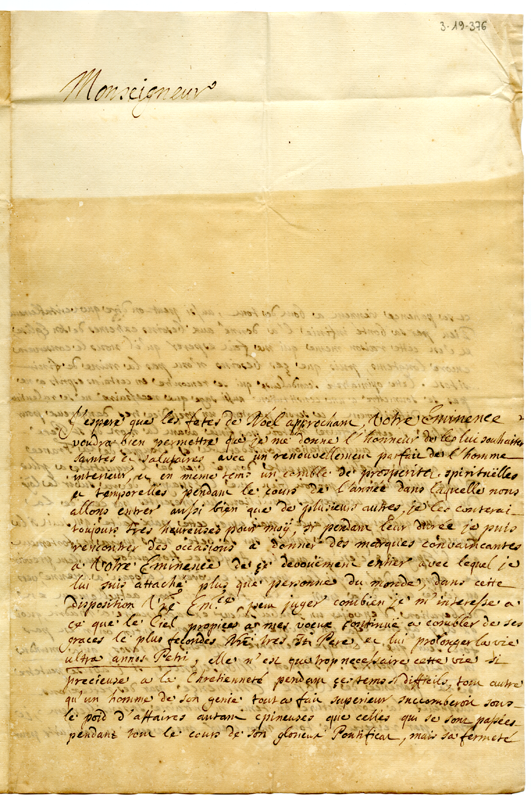 3-19-376
Monseigneur
J'espere que les fetes de Nöel aprochant, Votre Eminence
voudra bien permettre que je me donne l'honneur de les luy souhaiter
saintes et salutaires, avec un renouvellement parfait de l'homme
interieur, et en meme tems un comble de prosperitez spirituelles
et temporelles pendant le cours de l'année dans laquelle nous
allons entrer aussi bien que de plusieurs autres, je les conterai
toujours tres heureuses pour moy, si pendant leur durée je puis
rencontrer des occasions a donner des marques convaincantes
a Votre Eminence de ce devoüement entier avec lequel je
lui suis attaché plus que personne du monde, dans cette
disposition Em.ce peut juger combien je m'interesse a
ce que le Ciel propice a mes voeux continue a combler de ses
graces le plus Ntre tres St Pere, et lui prolonger la vie
ultra annos Petri, elle n'est que trop necessaire cette vie si
precieuse, a la Chrétienneté pendant ce tems difficils, tout autre
qu'un homme de son genie tout a fait superieur succomberoit sous
le poid d'affaires autant epineuses que celles qui se sont passées
pendant tout le cours de son glorieux Pontificat, mais sa fermeté